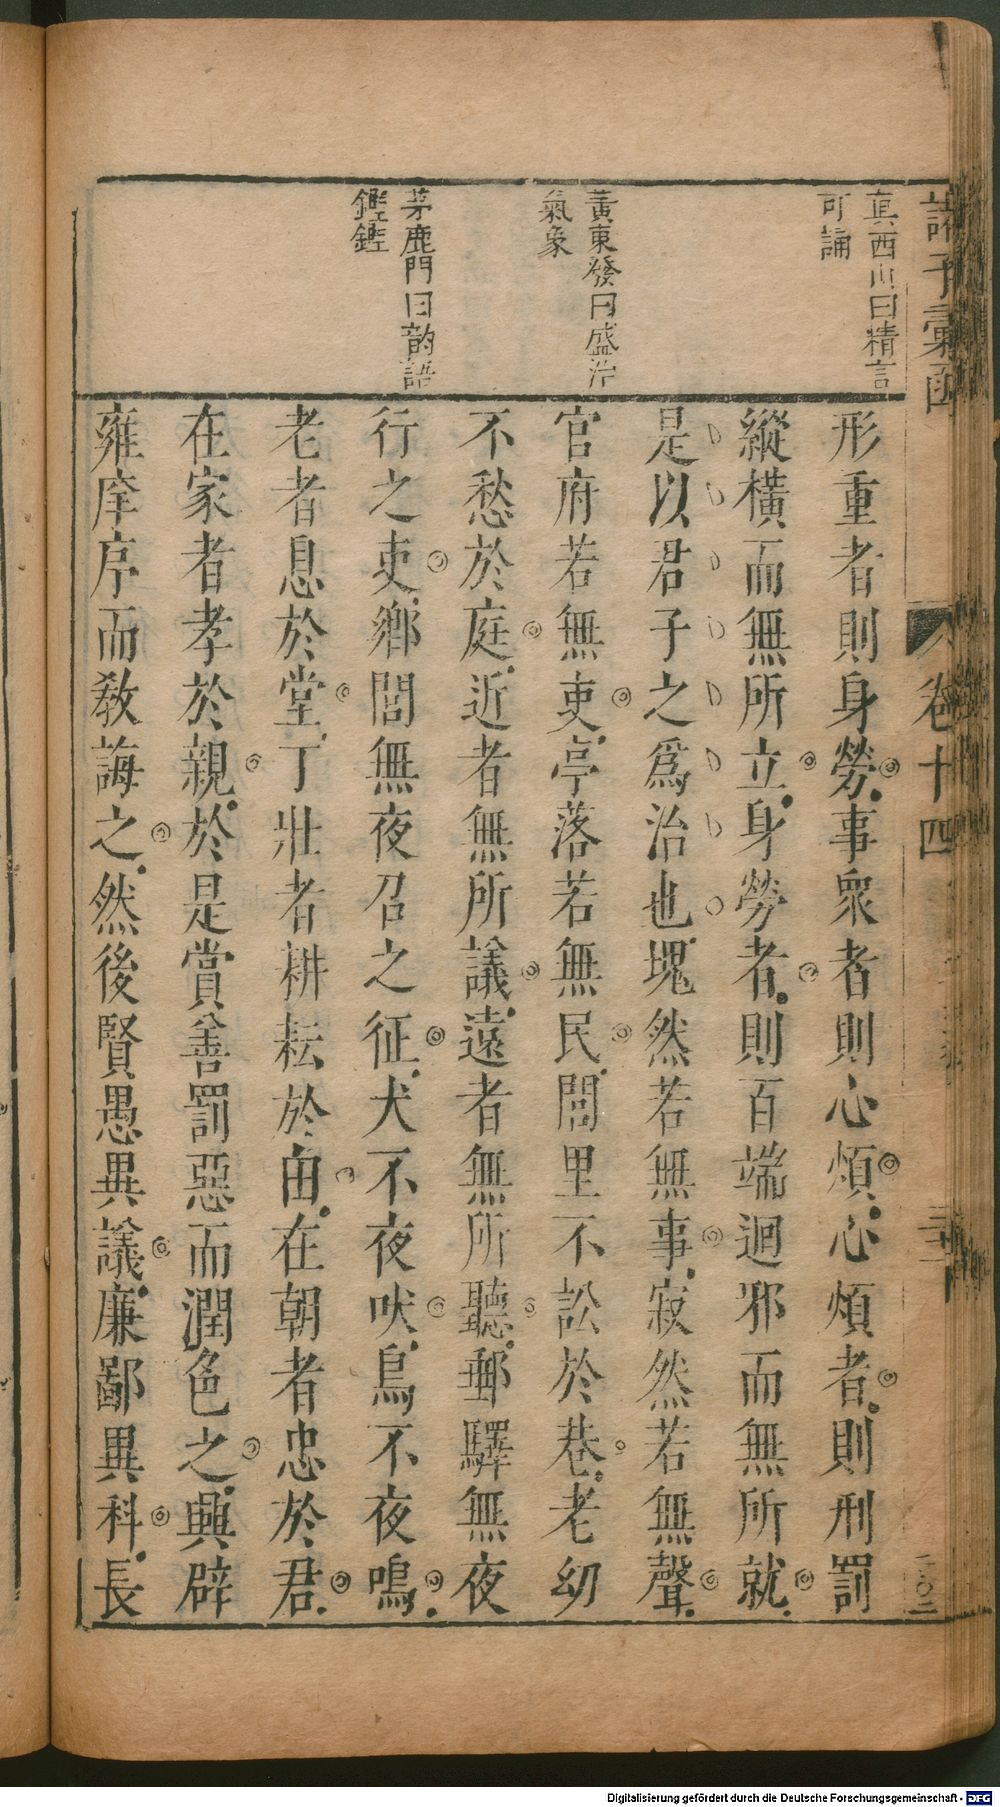 諸子彙函
卷十四
眞西山曰精言
可誦
黃東發曰盛治
氣象
茅鹿門曰韵語
鏗鏗
形重者則身勞事衆者則心煩心煩者則刑罰
縱橫而無所立身勞者則百端迴邪而無所就
是以君子之爲治也塊然若無事寂然若無聲
官府若無吏亭落若無民閭里不訟於巷老幼
不愁於庭近者無所議遠者無所聽郵驛無夜
行之吏鄉閭無夜召之征犬不夜吠鳥不夜鳴
老者息於堂丁壯者耕耘於田在朝者忠於君
在家者孝於親於是賞善罰惡而潤色之興辟
雍庠序而敎誨之然後賢愚異議廉鄙異科長
Digitalisierung gefördert durch die Deutsche Forschungsgemeinschaft - DFG